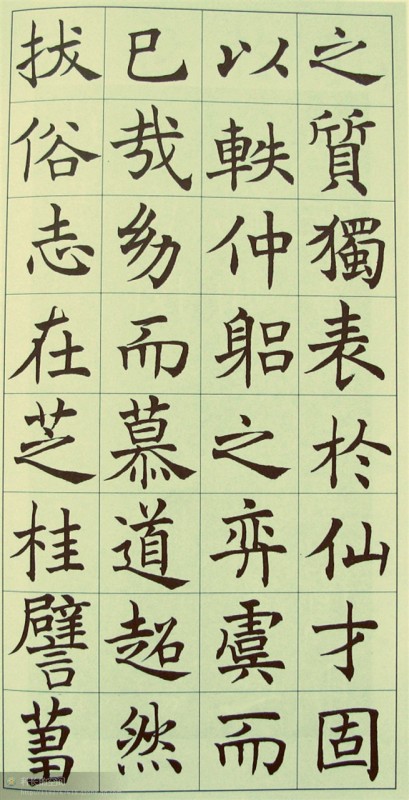 之質獨表於仙才固
以軼仲躳之弈虞而
已哉幼而慕道超然
拔俗志在芝桂譬